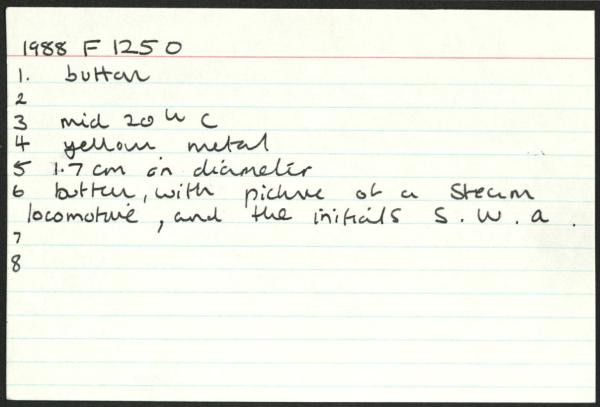 1988 F 1250
1. button
2
3 mid 20th C
4 yellow metal
5 1.7 cm in diameter
6 button, with picture of a steam
locomotive, and the initials S. W. a.
7
8